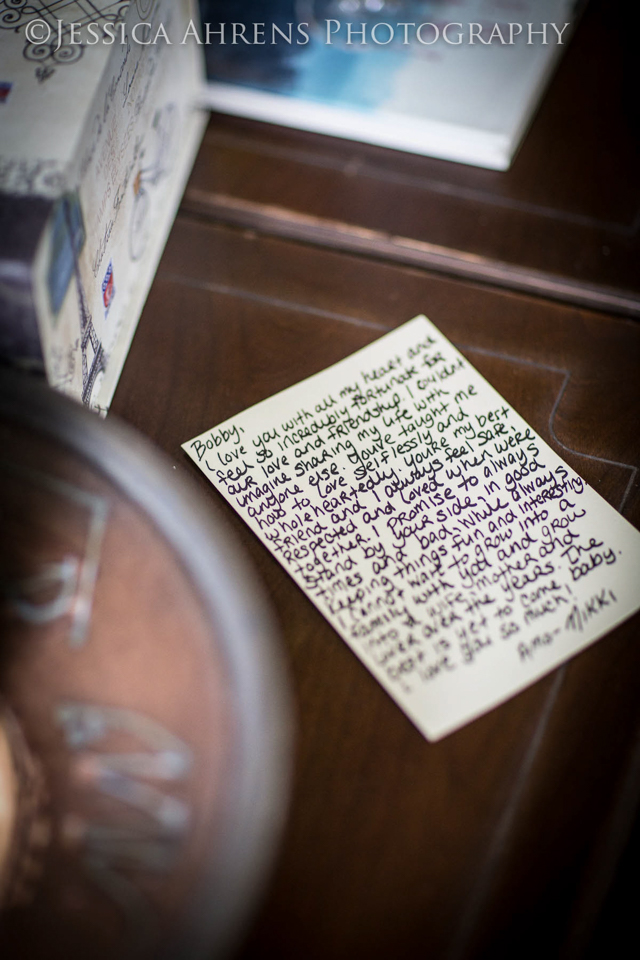 ©JESSICA AHRENS PHOTOGRAPHY
Bobby,
I love you with all my heart and
feel so incredibly fortunate for
our love and friendship. I couldn't
imagine sharing my life with
anyone else. You've taught me
how to love selflessly and
wholeheartedly. You're my best
friend and I always feel safe,
respected and loved when were
together. I promise to always
stand by your side in good
times and bad while always
keeping things fun and interesting.
I cannot wait to grow into a
family with you and grow
into a wife, mother and
over the years. The
best is yet to come, baby.
I love you so much!
Amo- NIKKI